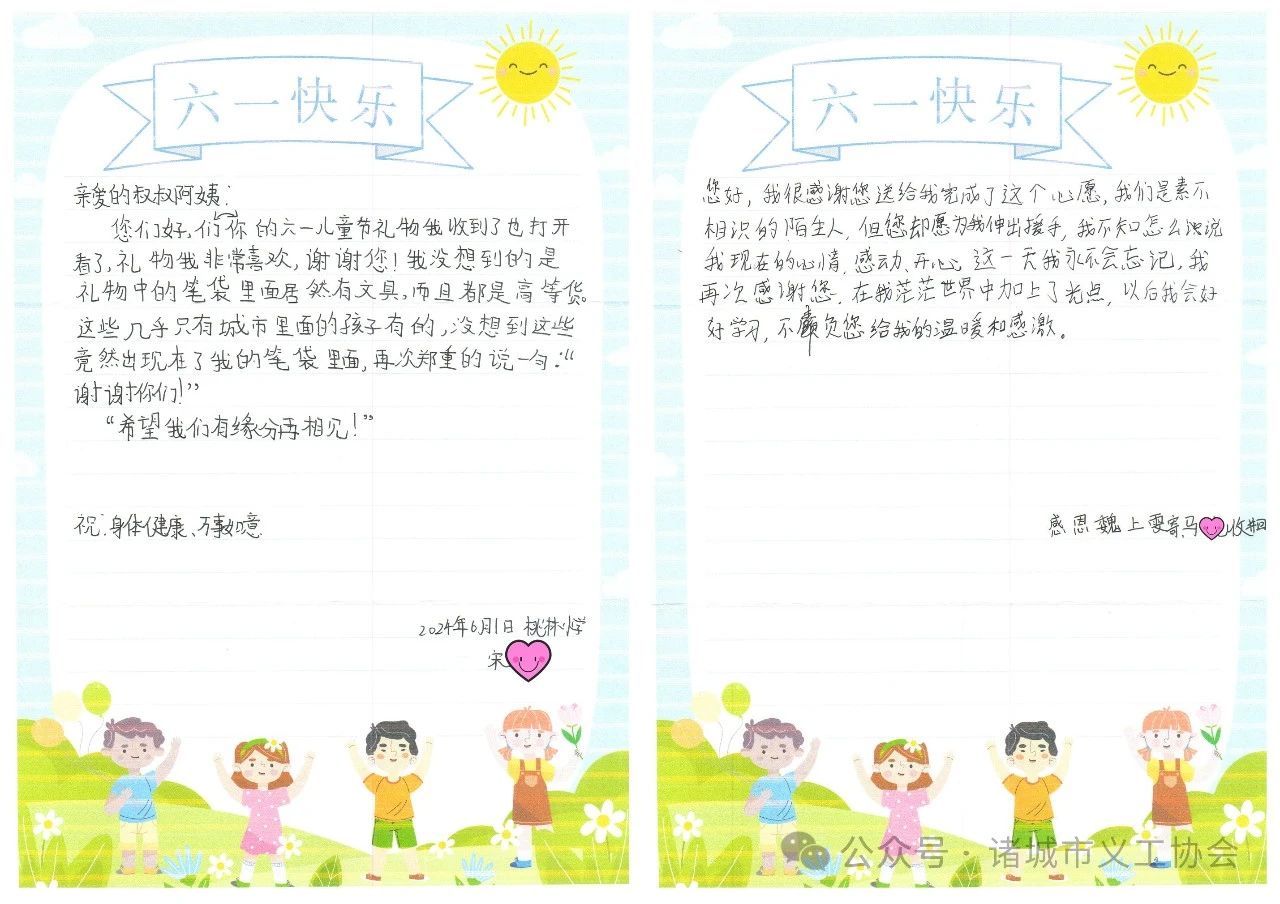 六一快乐
亲爱的叔叔阿姨:
您们好,们你的六一儿童节礼物我收到了也打开
看了,礼物我非常喜欢,谢谢您!我没想到的是
礼物中的笔袋里面居然有文具,而且都是高等货。
这些几乎只有城市里面的孩子有的,没想到这些
竟然出现在了我的笔袋里面,再次郑重的说一句:“
谢谢你们!”
“希望我们有缘分再相见!”
祝:身体健康、万事如意
2024年6月1日 桃林小学
宋
六一快乐
您好,我很感谢您送给我完成了这个心愿,我们是素不
相识的陌生人,但您却愿为我伸出援手,我不知怎么说
我现在的心情,感动、开心,这一天我永不会忘记,我
再次感谢您,在我茫茫世界中加上了光点,以后我会好
好学习,不负您给我的温暖和感激。
感恩魏上
公众号·诸城市义工协会